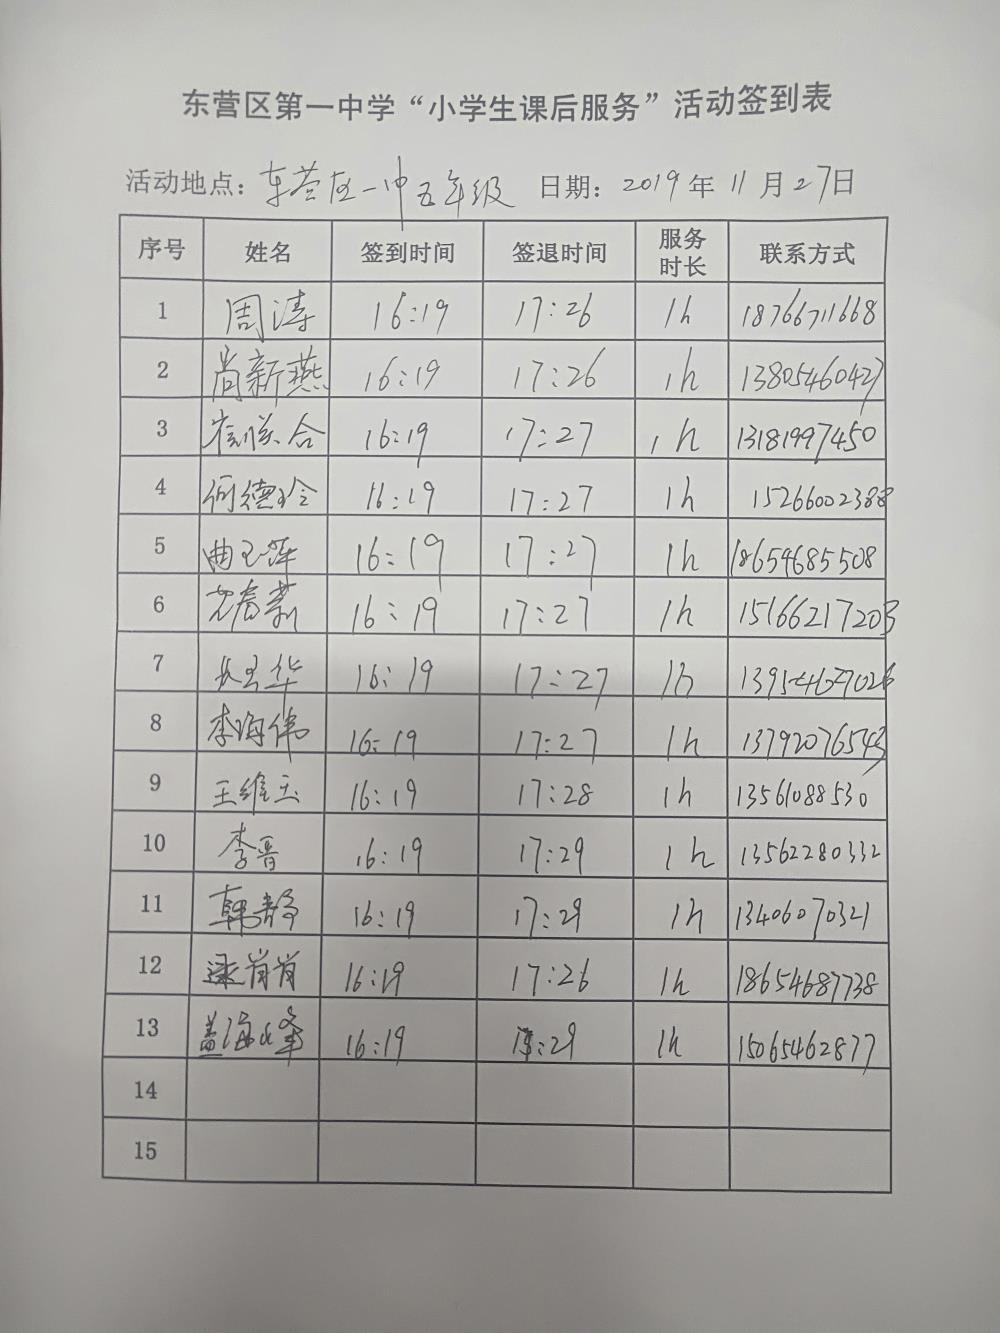 东营区第一中学“小学生课后服务”活动签到表
活动地点：东营区一中五年级 日期：2019年11月27日
序号 姓名 签到时间 签退时间 服务时长 联系方式
1 周涛 16:19 17:26 1h 18766711668
2 尚新燕 16:19 17:26 1h 13805460427
3 崔联合 16:19 17:27 1h 13181997450
4 何德玲 16:19 17:27 1h 15266002388
5 曲玉萍 16:19 17:27 1h 18654685508
6 16:19 17:27 1h 15166217203
7 16:19 17:27 1h
8 李海伟 16:19 17:27 1h 13792076543
9 王维玉 16:19 17:28 1h 13561088530
10 李晋 16:19 17:29 1h 13562280332
11 韩静 16:19 17:29 1h 13406070321
12 梁肖肖 16:19 17:26 1h 18654687738
13 盖海峰 16:19 1h 15065462877
14
15